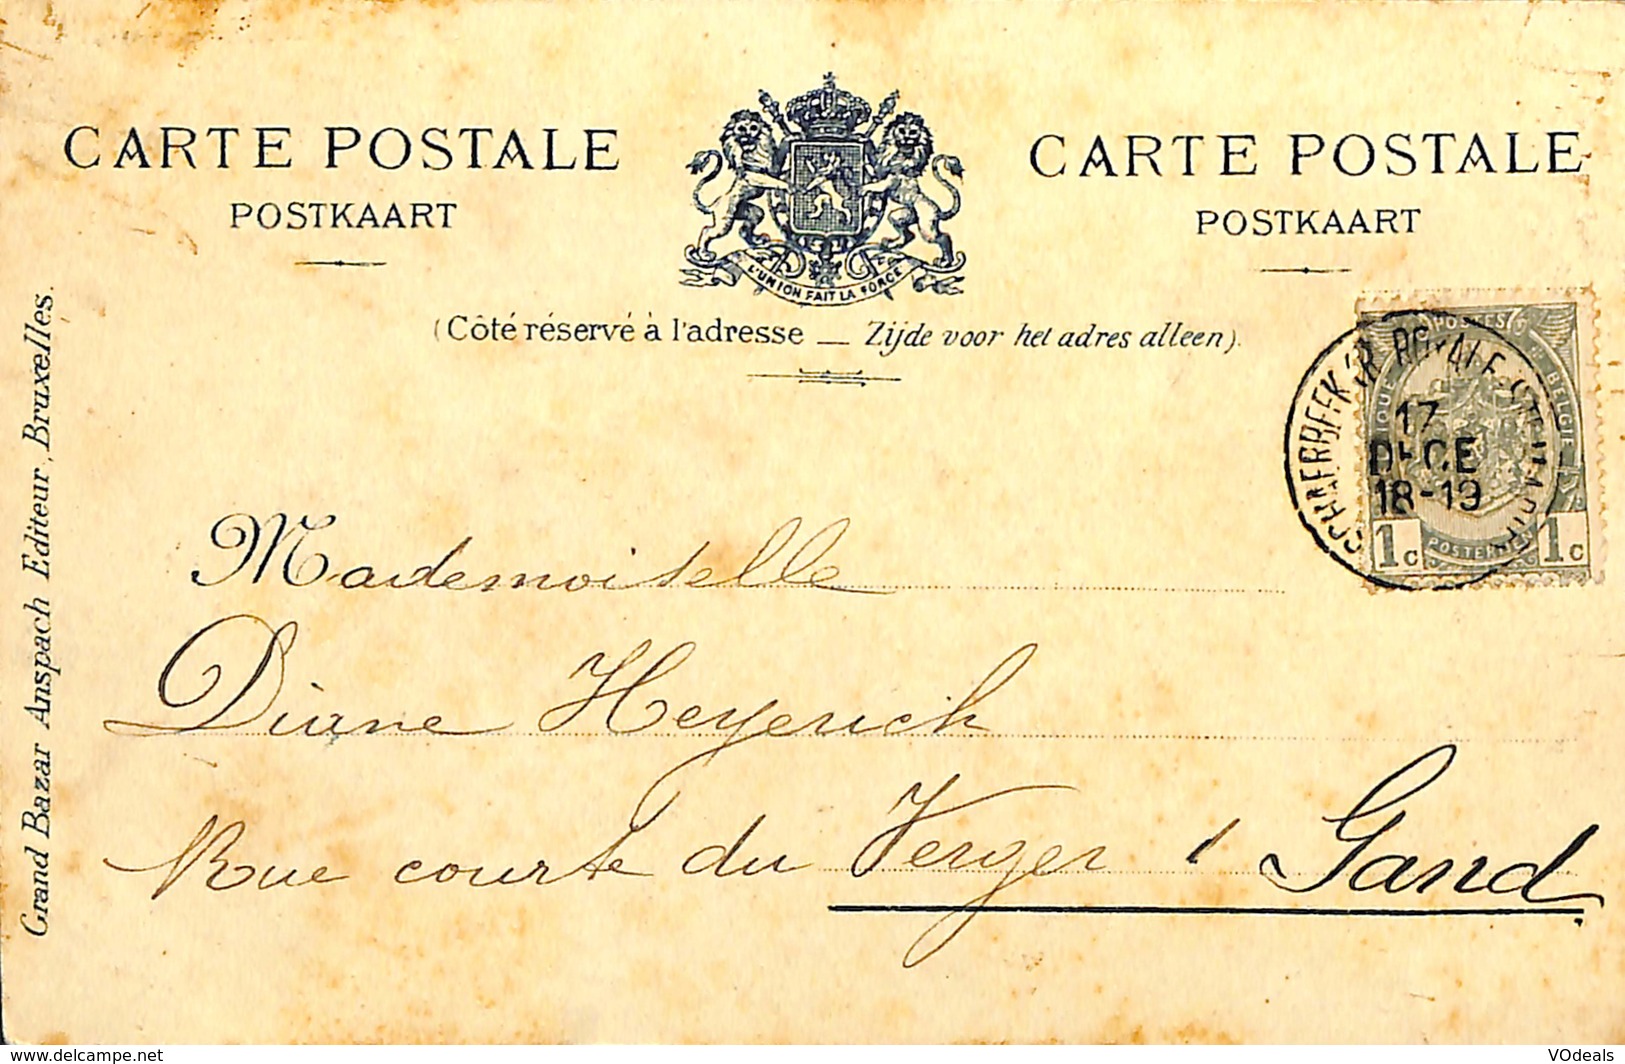 CARTE POSTALE
POSTKAART
CARTE POSTALE
POSTKAART
L'UNION FAIT LA FORCE
(Côté réservé à l'adresse — Zijde voor het adres alleen).
Grand Bazar Anspach Editeur, Bruxelles.
POSTES
BELGIE
17
DECE
18-19
1c
1c
Mademoiselle
Diane Heyerich
Rue courte du Verger 1 Gand
www.delcampe.net
VOdeals